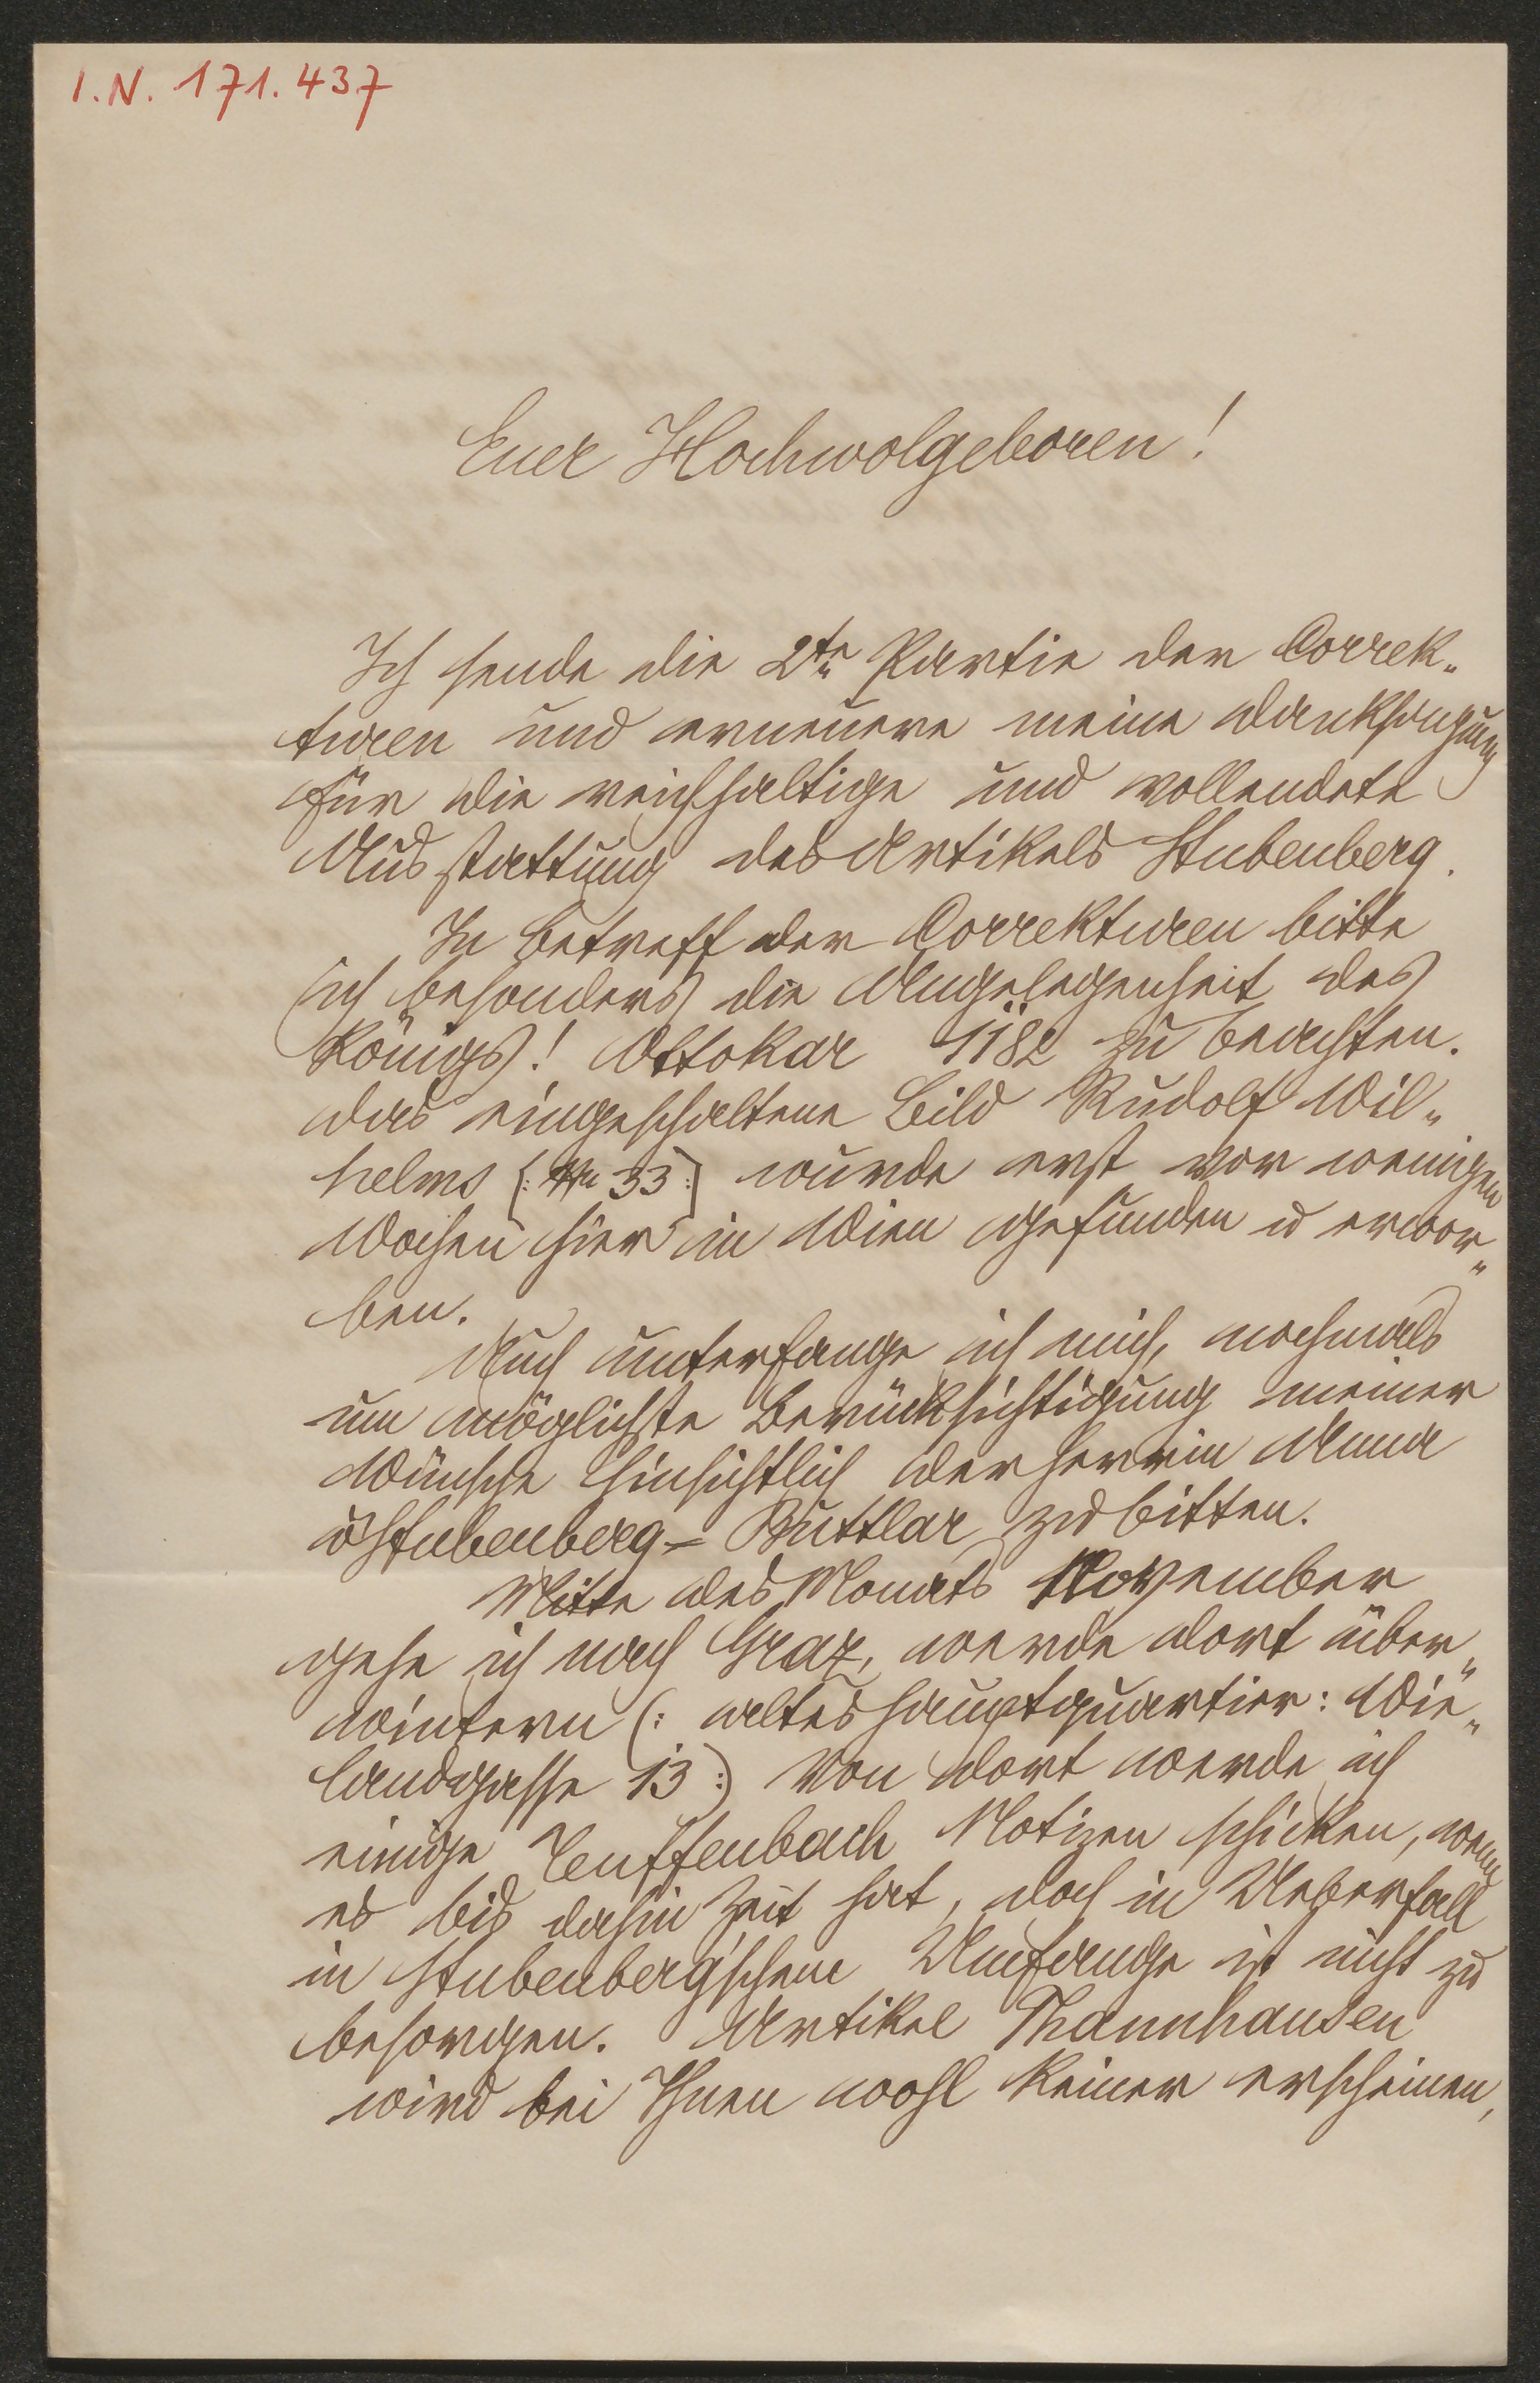 I.N. 171.437
Euer Hochwolgeboren!
Ich sende die 2te Partie der Correk„
turen und erneuere meine Danksagung
für die reichhaltige und vollendete
Ausstattung des Artikels Stubenberg.
In Betreff der Correkturen bitte
ich besonders die Angelegenheit des
Königs! Ottokar 1182 zu beachten.
Das eingeschaltene Bild Rudolf Wil„
helms [: 33:] wurde erst vor wenigen
Wochen hier in Wien gefunden u erwor„
ben.
Auch unterfange ich mich, nochmals
um möglichste Berücksichtigung meiner
Wünsche hinsichtlich der Herrin Anna
v Stubenberg - Buttlar zu bitten.
Mitte des Monats November
gehe ich nach Graz, werde dort über„
wintern (: altes Hauptquartier: Wie„
landgasse 13:) Von dort werde ich
einige Teuffenbach Notizen schicken, wenn
es bis dahin Zeit hat, doch in Ueberfall
in Stubenberg'schem Umfange ist nicht zu
besorgen. Artikel Thannhausen
wird bei Ihnen wohl keiner erscheinen,